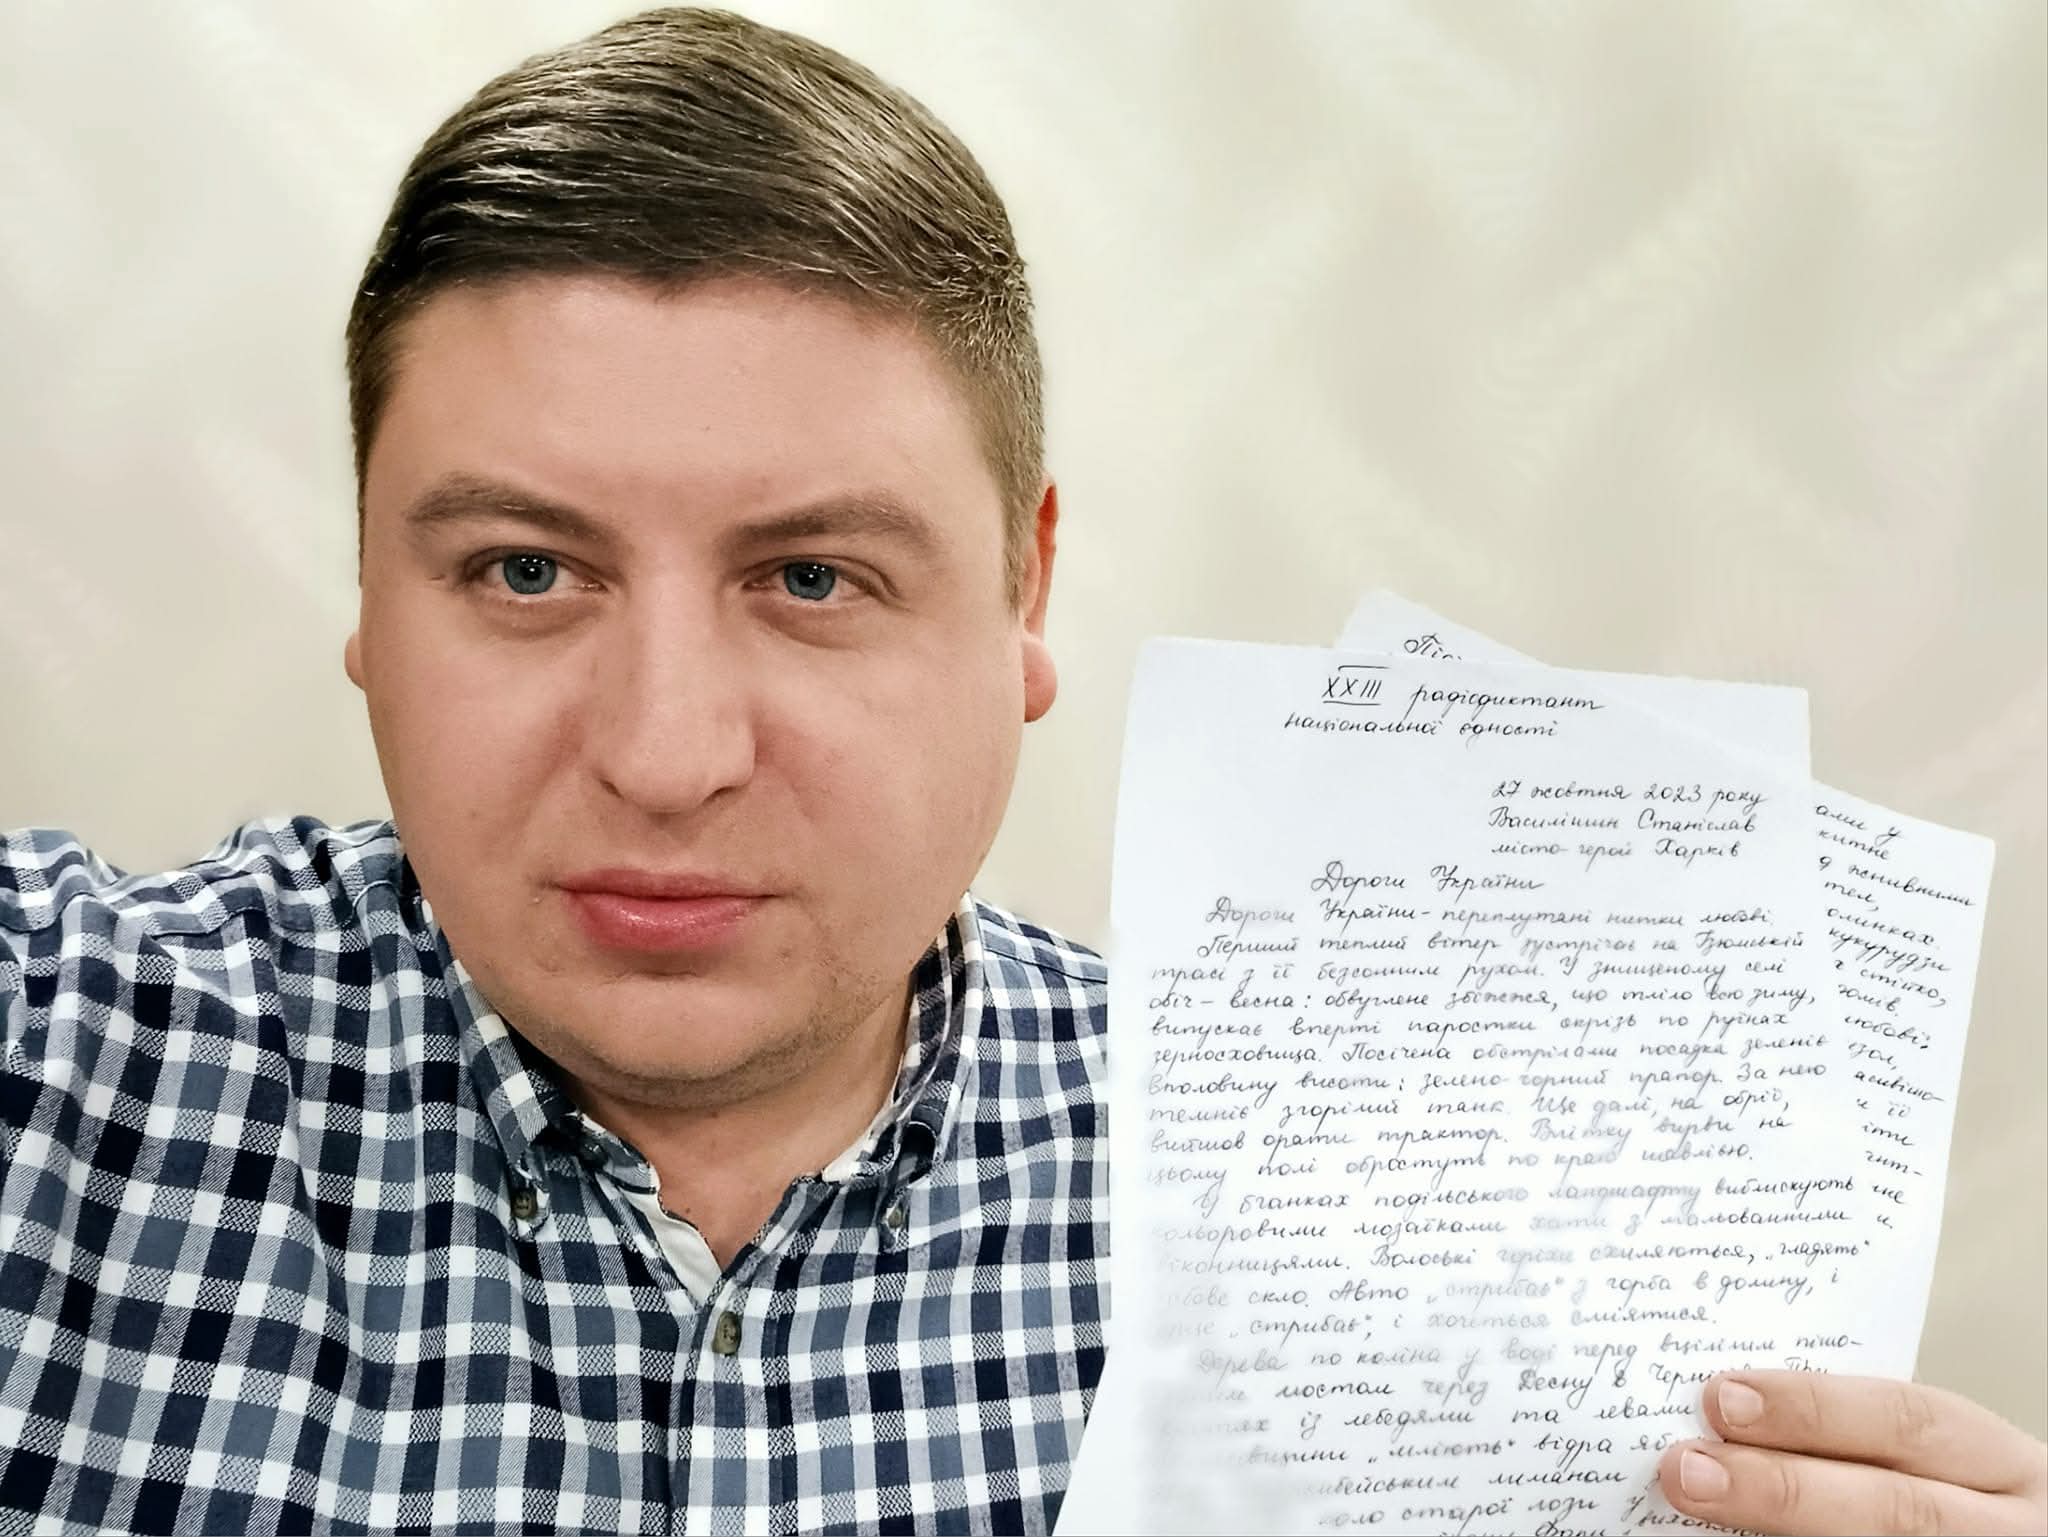 Піс
XXIII радіодиктант
національної єдності
27 жовтня 2023 року
Василішин Станіслав
місто-герой Харків
Дороги України
Дороги України - переплутані нитки любові.
Перший теплий вітер зустрічає на Ізюмській
трасі з її безсонним рухом. У знищеному селі
обіч - весна: обвуглене збіжжя, що тліло всю зиму,
випускає вперті паростки скрізь по руїнах
зерносховища. Посічена обстрілами посадка зеленіє
вполовину висоти: зелено-чорний прапор. За нею
темніє згорілий танк. Ще далі, на обрії,
вийшов орати трактор. Влітку вирви на
цьому полі обростуть по краю шавлією.
У бганках подільського ландшафту виблискують
кольоровими мозаїками хати з мальованими
віконницями. Волоські горіхи схиляються, „гладять"
скло. Авто „стрибає" з горба в долину, і
ще „стрибає", і хочеться сміятися.
Дерева по коліна у воді перед вцілілим пішо-
мостом через Десну в
із лебедями та левами
„мліють" відра
лиманом
старої лози у
ами у
китне
д жнивними
тел,
олинках.
кукурудзи
х стійко,
голів.
любові:
асивішо-
и її
іти
чит-
не
и